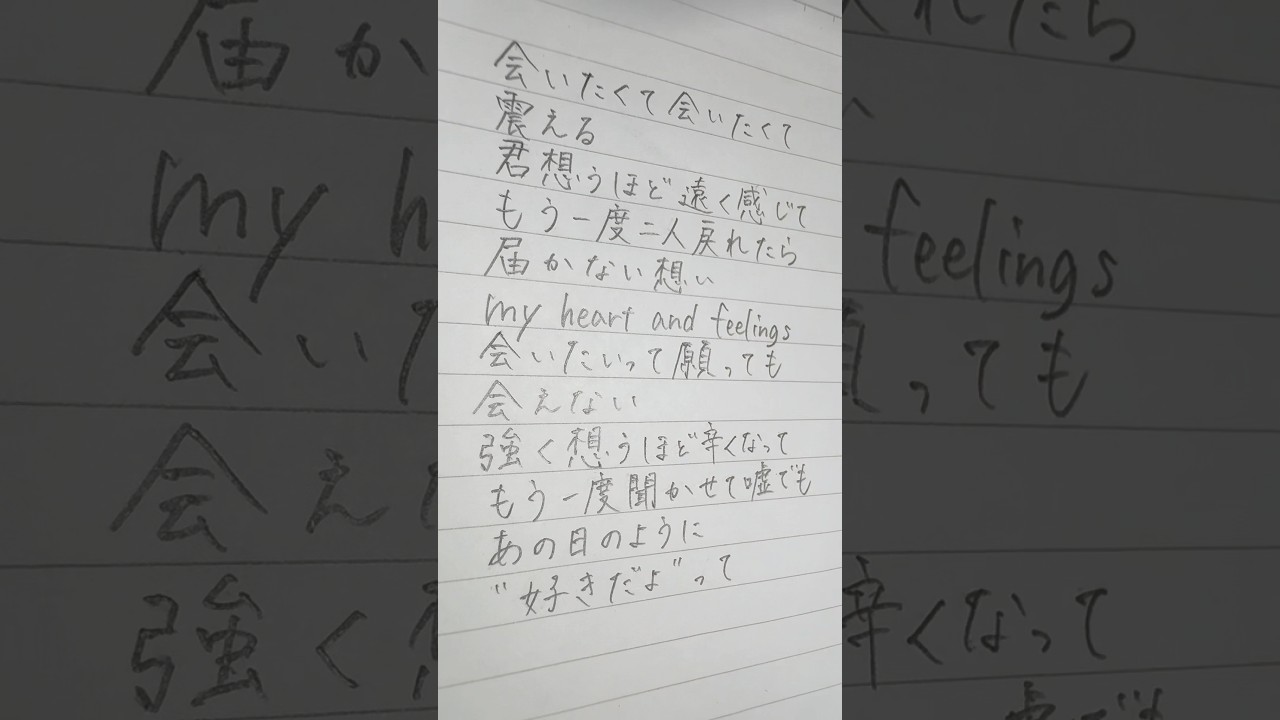 会いたくて会いたくて
震える
君想うほど遠く感じて
もう一度二人戻れたら
届かない想い
my heart and feelings
会いたいって願っても
会えない
強く想うほど辛くなって
もう一度聞かせて嘘でも
あの日のように
"好きだよ"って